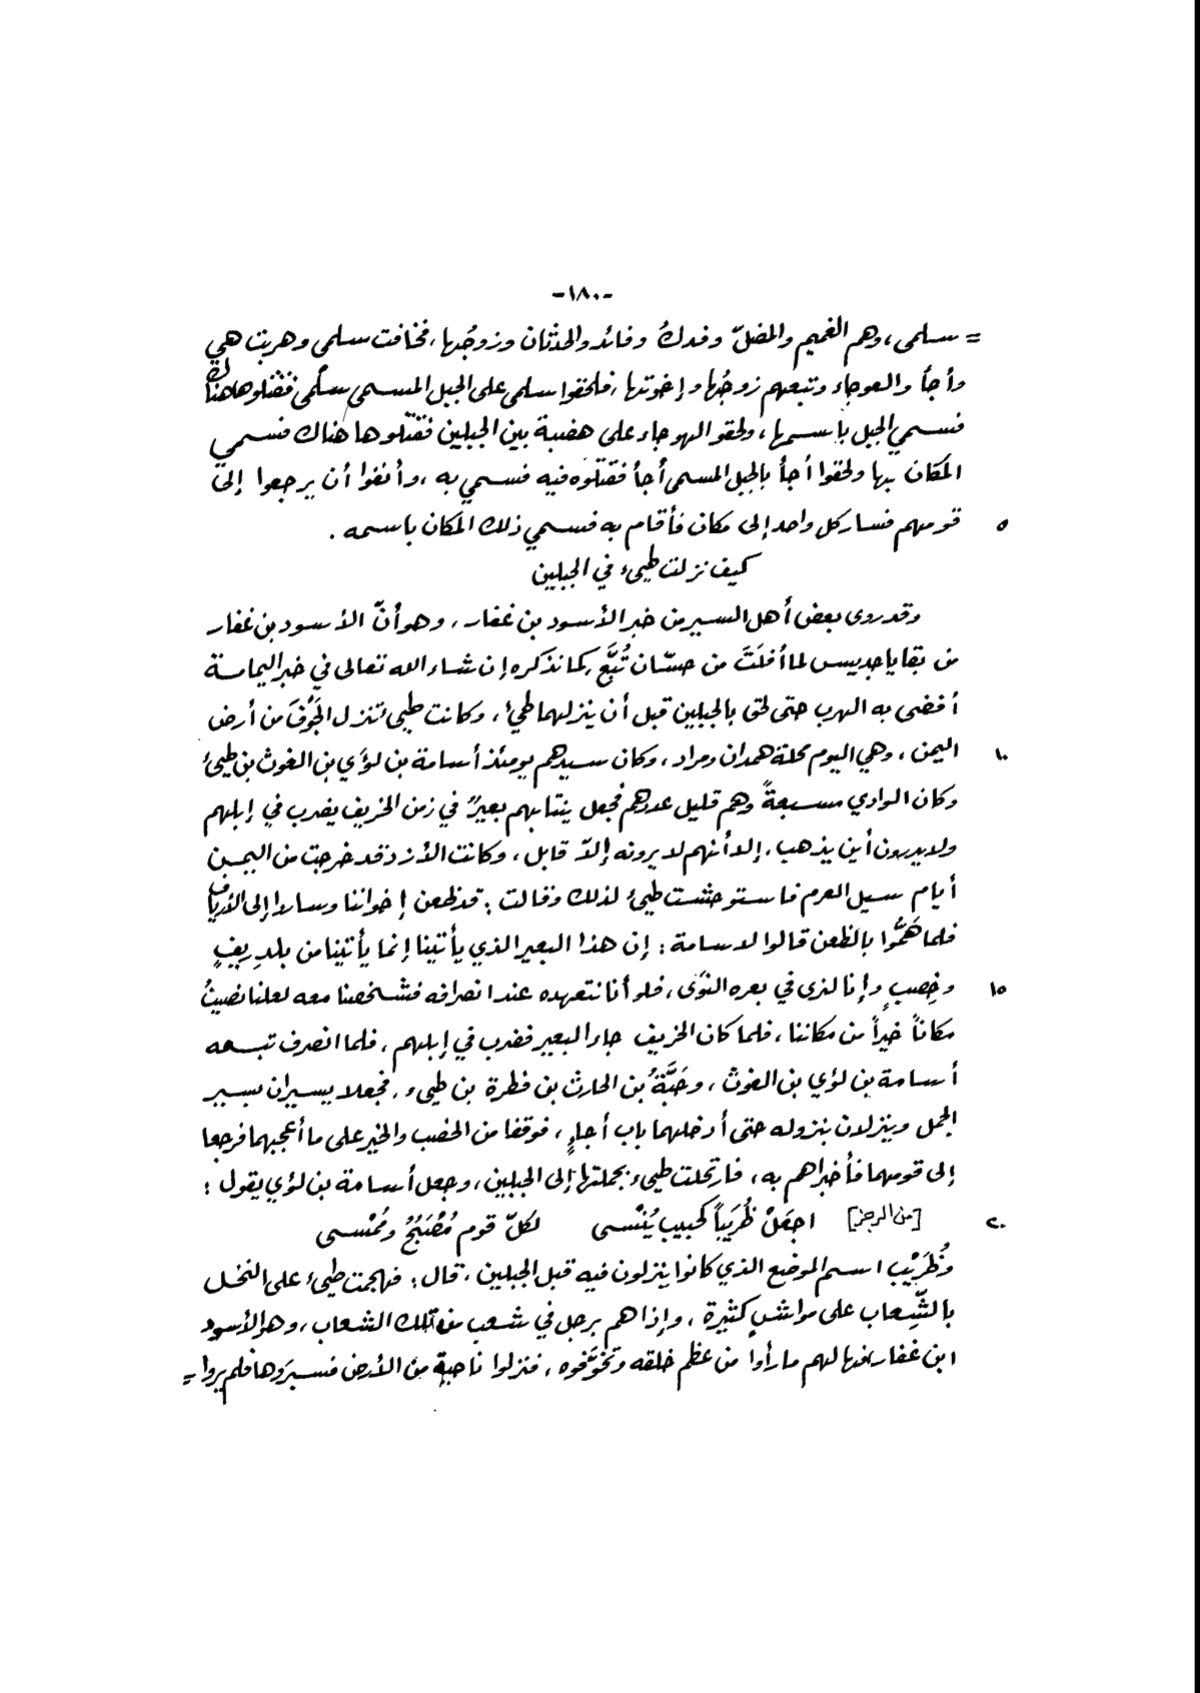 -١٨٠-
= سلمى، وهم الغميم والمضلّ وفدكُ وفائد والحدثان وزوجُها، فخافت سلمى وهربت هي
وأجأ والعوجاء وتبعهم زوجُها وإخوتها، فلحقوا سلمى على الجبل المسمى سلمى فقتلوها هناك
فسمي الجبل باسمها، ولحقو العوجاء على هضبة بين الجبلين فقتلوها هناك فسمي
المكان بها ولحقوا أجأ بالجبل المسمى أجأ فقتلوه فيه فسمي به، وأنفوا أن يرجعوا إلى
٥ قومهم فسار كل واحد إلى مكان فأقام به فسمي ذلك المكان باسمه.
كيف نزلت طيىء في الجبلين
وقد روى بعض أهل السير من خبر الأسود بن غفار، وهو أنّ الأسود بن غفار
من بقايا جديس لما أفلَتَ من حسّان تُبَّع كما نذكره إن شاء الله تعالى في خبر اليمامة
أفضى به الهرب حتى لحق بالجبلين قبل أن ينزلهما طيىء، وكانت طيىء تنزل الجَوْفَ من أرض
١٠ اليمن، وهي اليوم محلة همدان ومراد، وكان سيدهم يومئذ أسامة بن لؤَي بن الغوث بن طيىء
وكان الوادي مسبعةً وهم قليل عددهم فجعل ينتابهم بعيرٌ في زمن الخريف يضرب في إبلهم
ولا يدرون أين يذهب، إلا أنهم لا يرونه إلّا قابل، وكانت الأزد قد خرجت من اليمن
أيام سيل العرم فاستوحشت طيىء لذلك وقالت: قد ظعن إخواننا وساروا إلى الأرياف
فلما هَمُّوا بالظعن قالوا لاسامة: إن هذا البعير الذي يأتينا إنما يأتينا من بلدِ ريفٍ
١٥ وخِصبٍ وإنا لنرى في بعره النوَى، فلو أنا نتعهده عند انصرافه فشخصنا معه لعلنا نصيبُ
مكاناً خيراً من مكاننا، فلما كان الخريف جاء البعير فضرب في إبلهم، فلما انصرف تبعه
أسامة بن لؤي بن الغوث، وحَبَّةُ بن الحارث بن فطرة بن طيىء، فجعلا يسيران بسير
الجمل وينزلان بنزوله حتى أدخلهما باب أجاءٍ، فوقفا من الخصب والخير على ما أعجبهما فرجعا
إلى قومهما فأخبراهم به، فارتحلت طيىء بجملتها إلى الجبلين، وجعل أسامة بن لؤي يقول:
٢٠ [من الرجز] اجعَلْ ظُرَيباً كحبيب يُنْسى لكلّ قوم مُصْبَحٌ ومُمْسى
وظُرَيْب اسم الموضع الذي كانوا ينزلون فيه قبل الجبلين، قال: فهجمت طيىء على النخل
بالشِّعاب على مواشٍ كثيرة، وإذا هم برجل في شعب من تلك الشعاب، وهو الأسود
ابن غفار، فهالهم ما رأوا من عظم خلقه وتخوّفوه، فنزلوا ناحية من الأرض فسبروها فلم يروا =